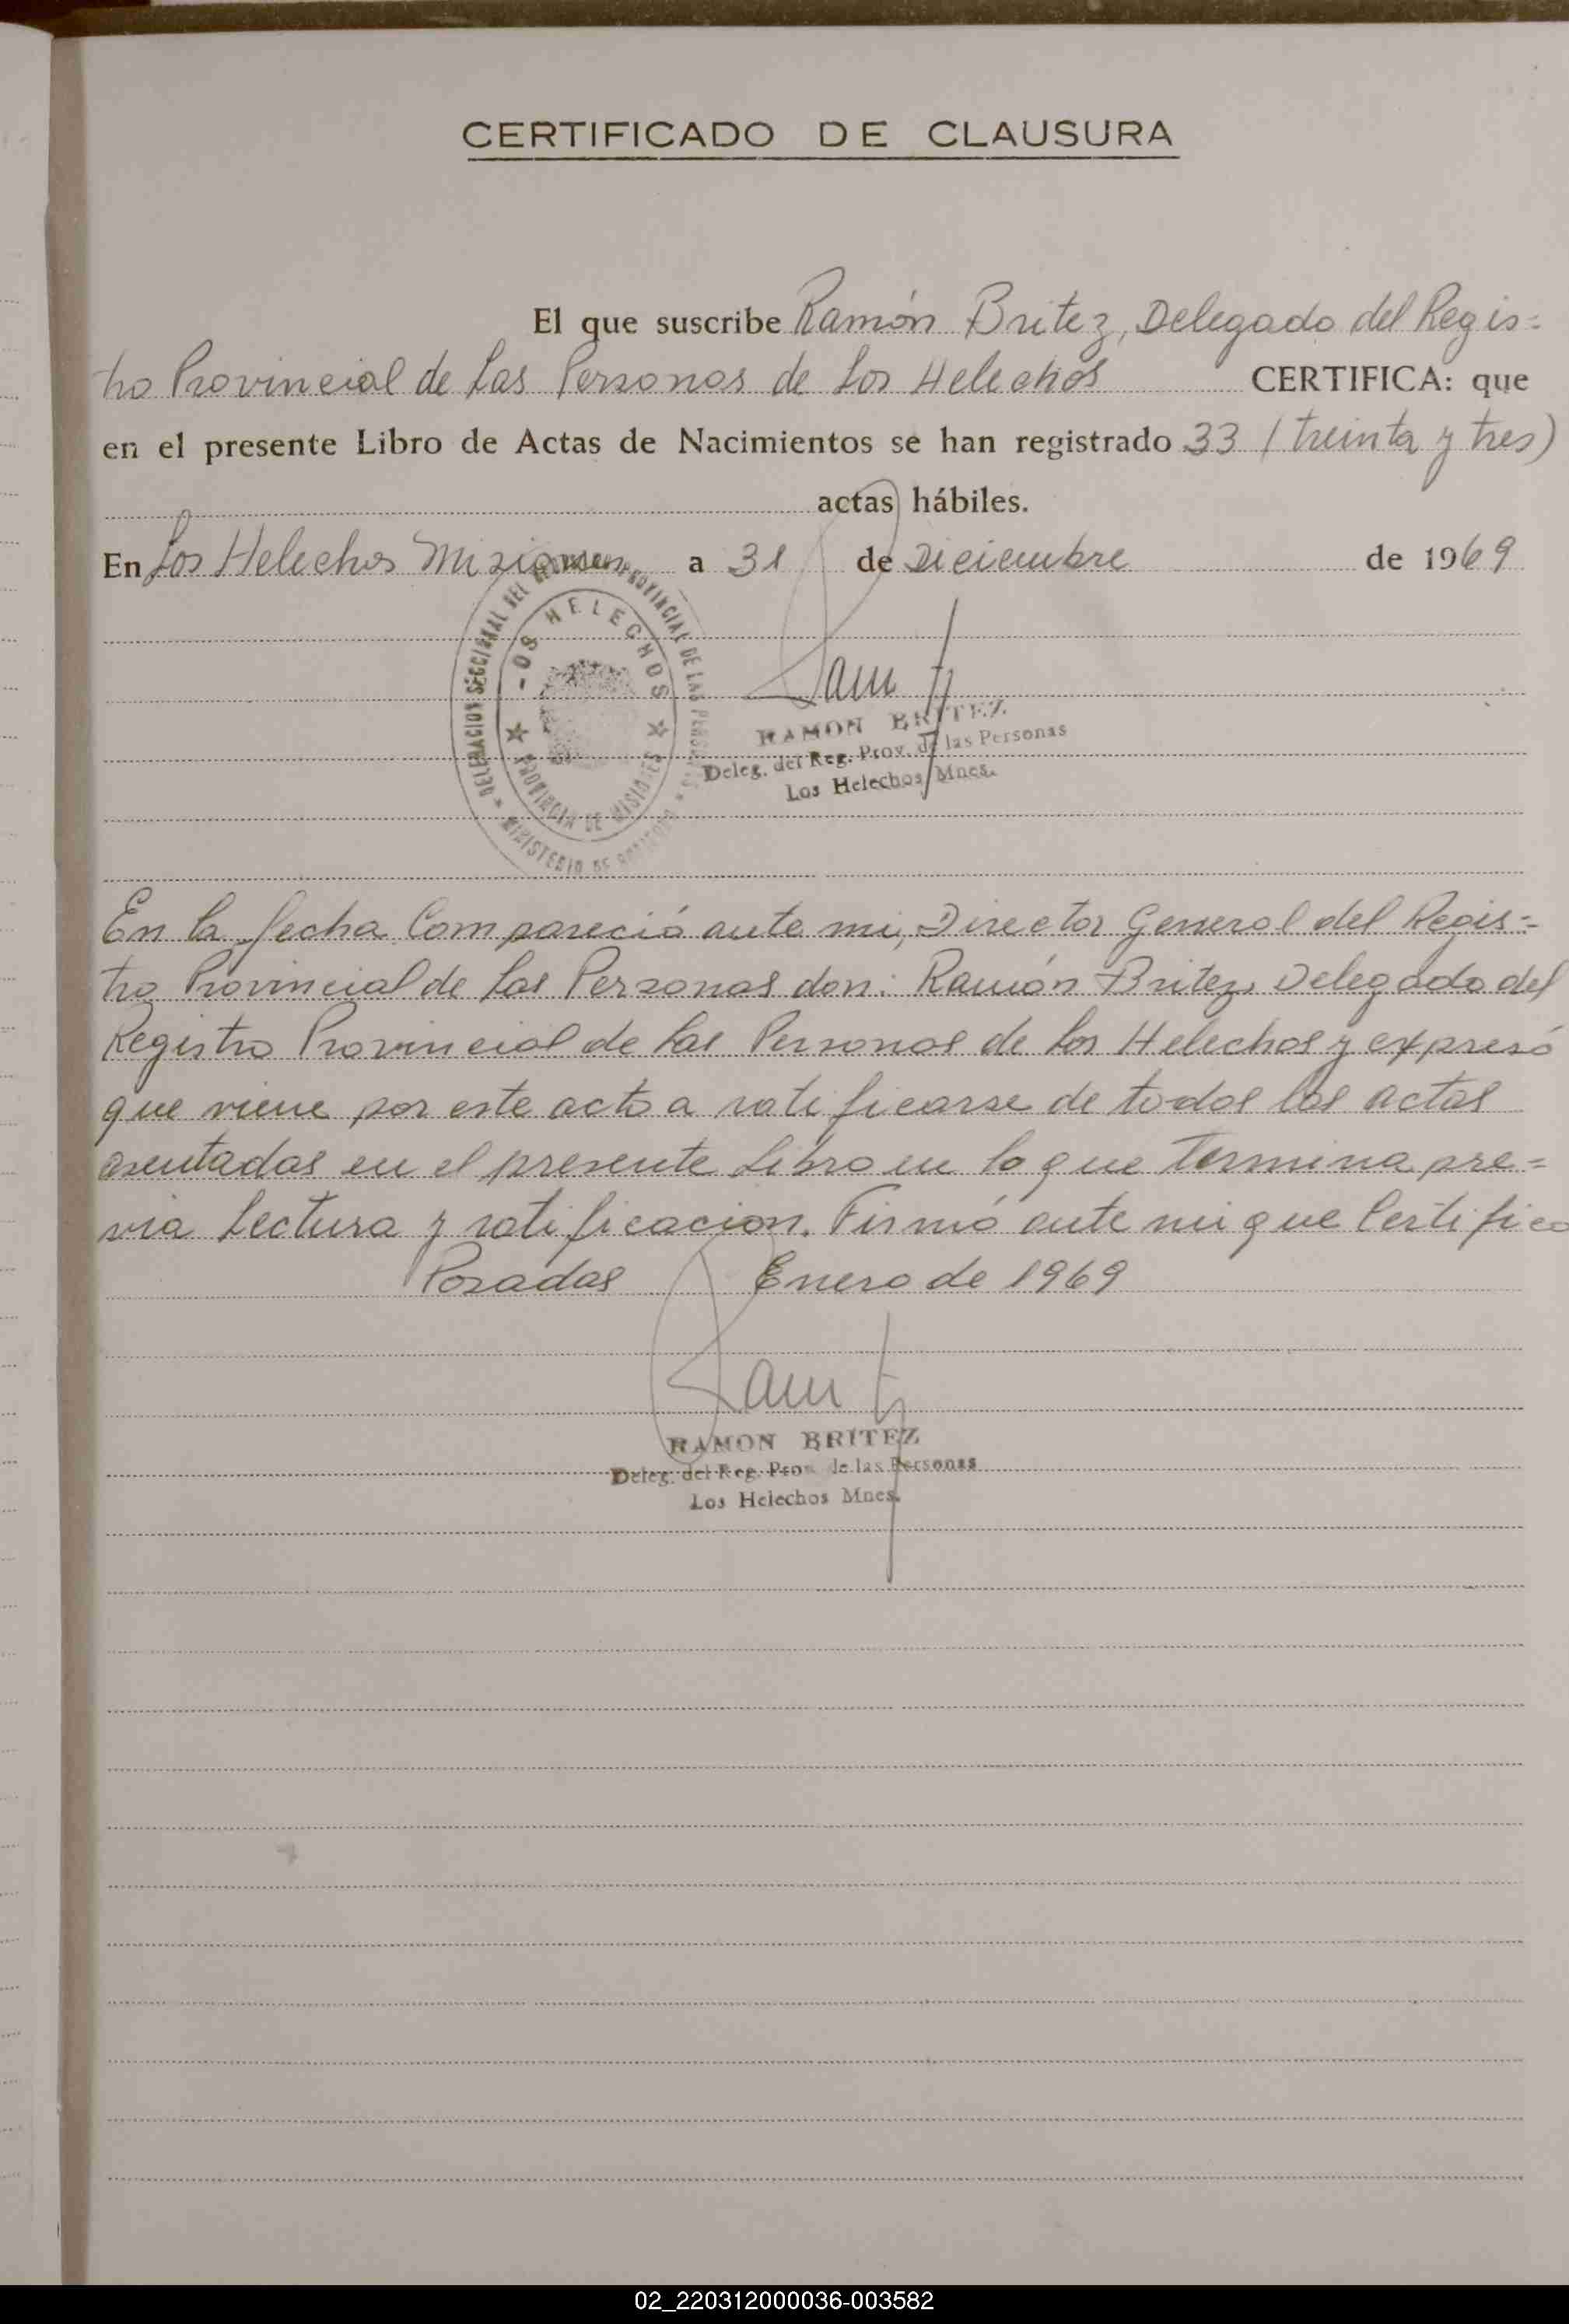 CERTIFICADO DE CLAUSURA
El que suscribe Ramón Britez, Delegado del Regis=
tro Provincial de Las Personas de Los Helechos CERTIFICA: que
en el presente Libro de Actas de Nacimientos se han registrado 33 (treinta y tres)
actas hábiles.
En Los Helechos Misiones a 31 de Diciembre de 1969
DELEGACION SECCIONAL DEL REGISTRO PROVINCIAL DE LAS PERSONAS
LOS HELECHOS
PROVINCIA DE MISIONES
MINISTERIO DE
RAMON BRITEZ
Deleg. del Reg. Prov. de las Personas
Los Helechos Mnes.
En la fecha Compareció ante mi, Director General del Regis=
tro Provincial de Las Personas don: Ramón Britez, Delegado del
Registro Provincial de Las Personas de Los Helechos y expresó
que viene por este acto a ratificarse de todas las actas
asentadas en el presente Libro en lo que Termina pre=
via Lectura y ratificacion. Firmó ante mi que Certifico
Posadas Enero de 1969
RAMON BRITEZ
Deleg. del Reg. Prov. de las Personas
Los Helechos Mnes.
02_220312000036-003582